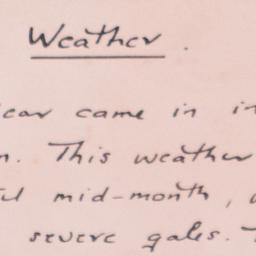 Weather.
came in
This weather
mid-month,
severe gales.